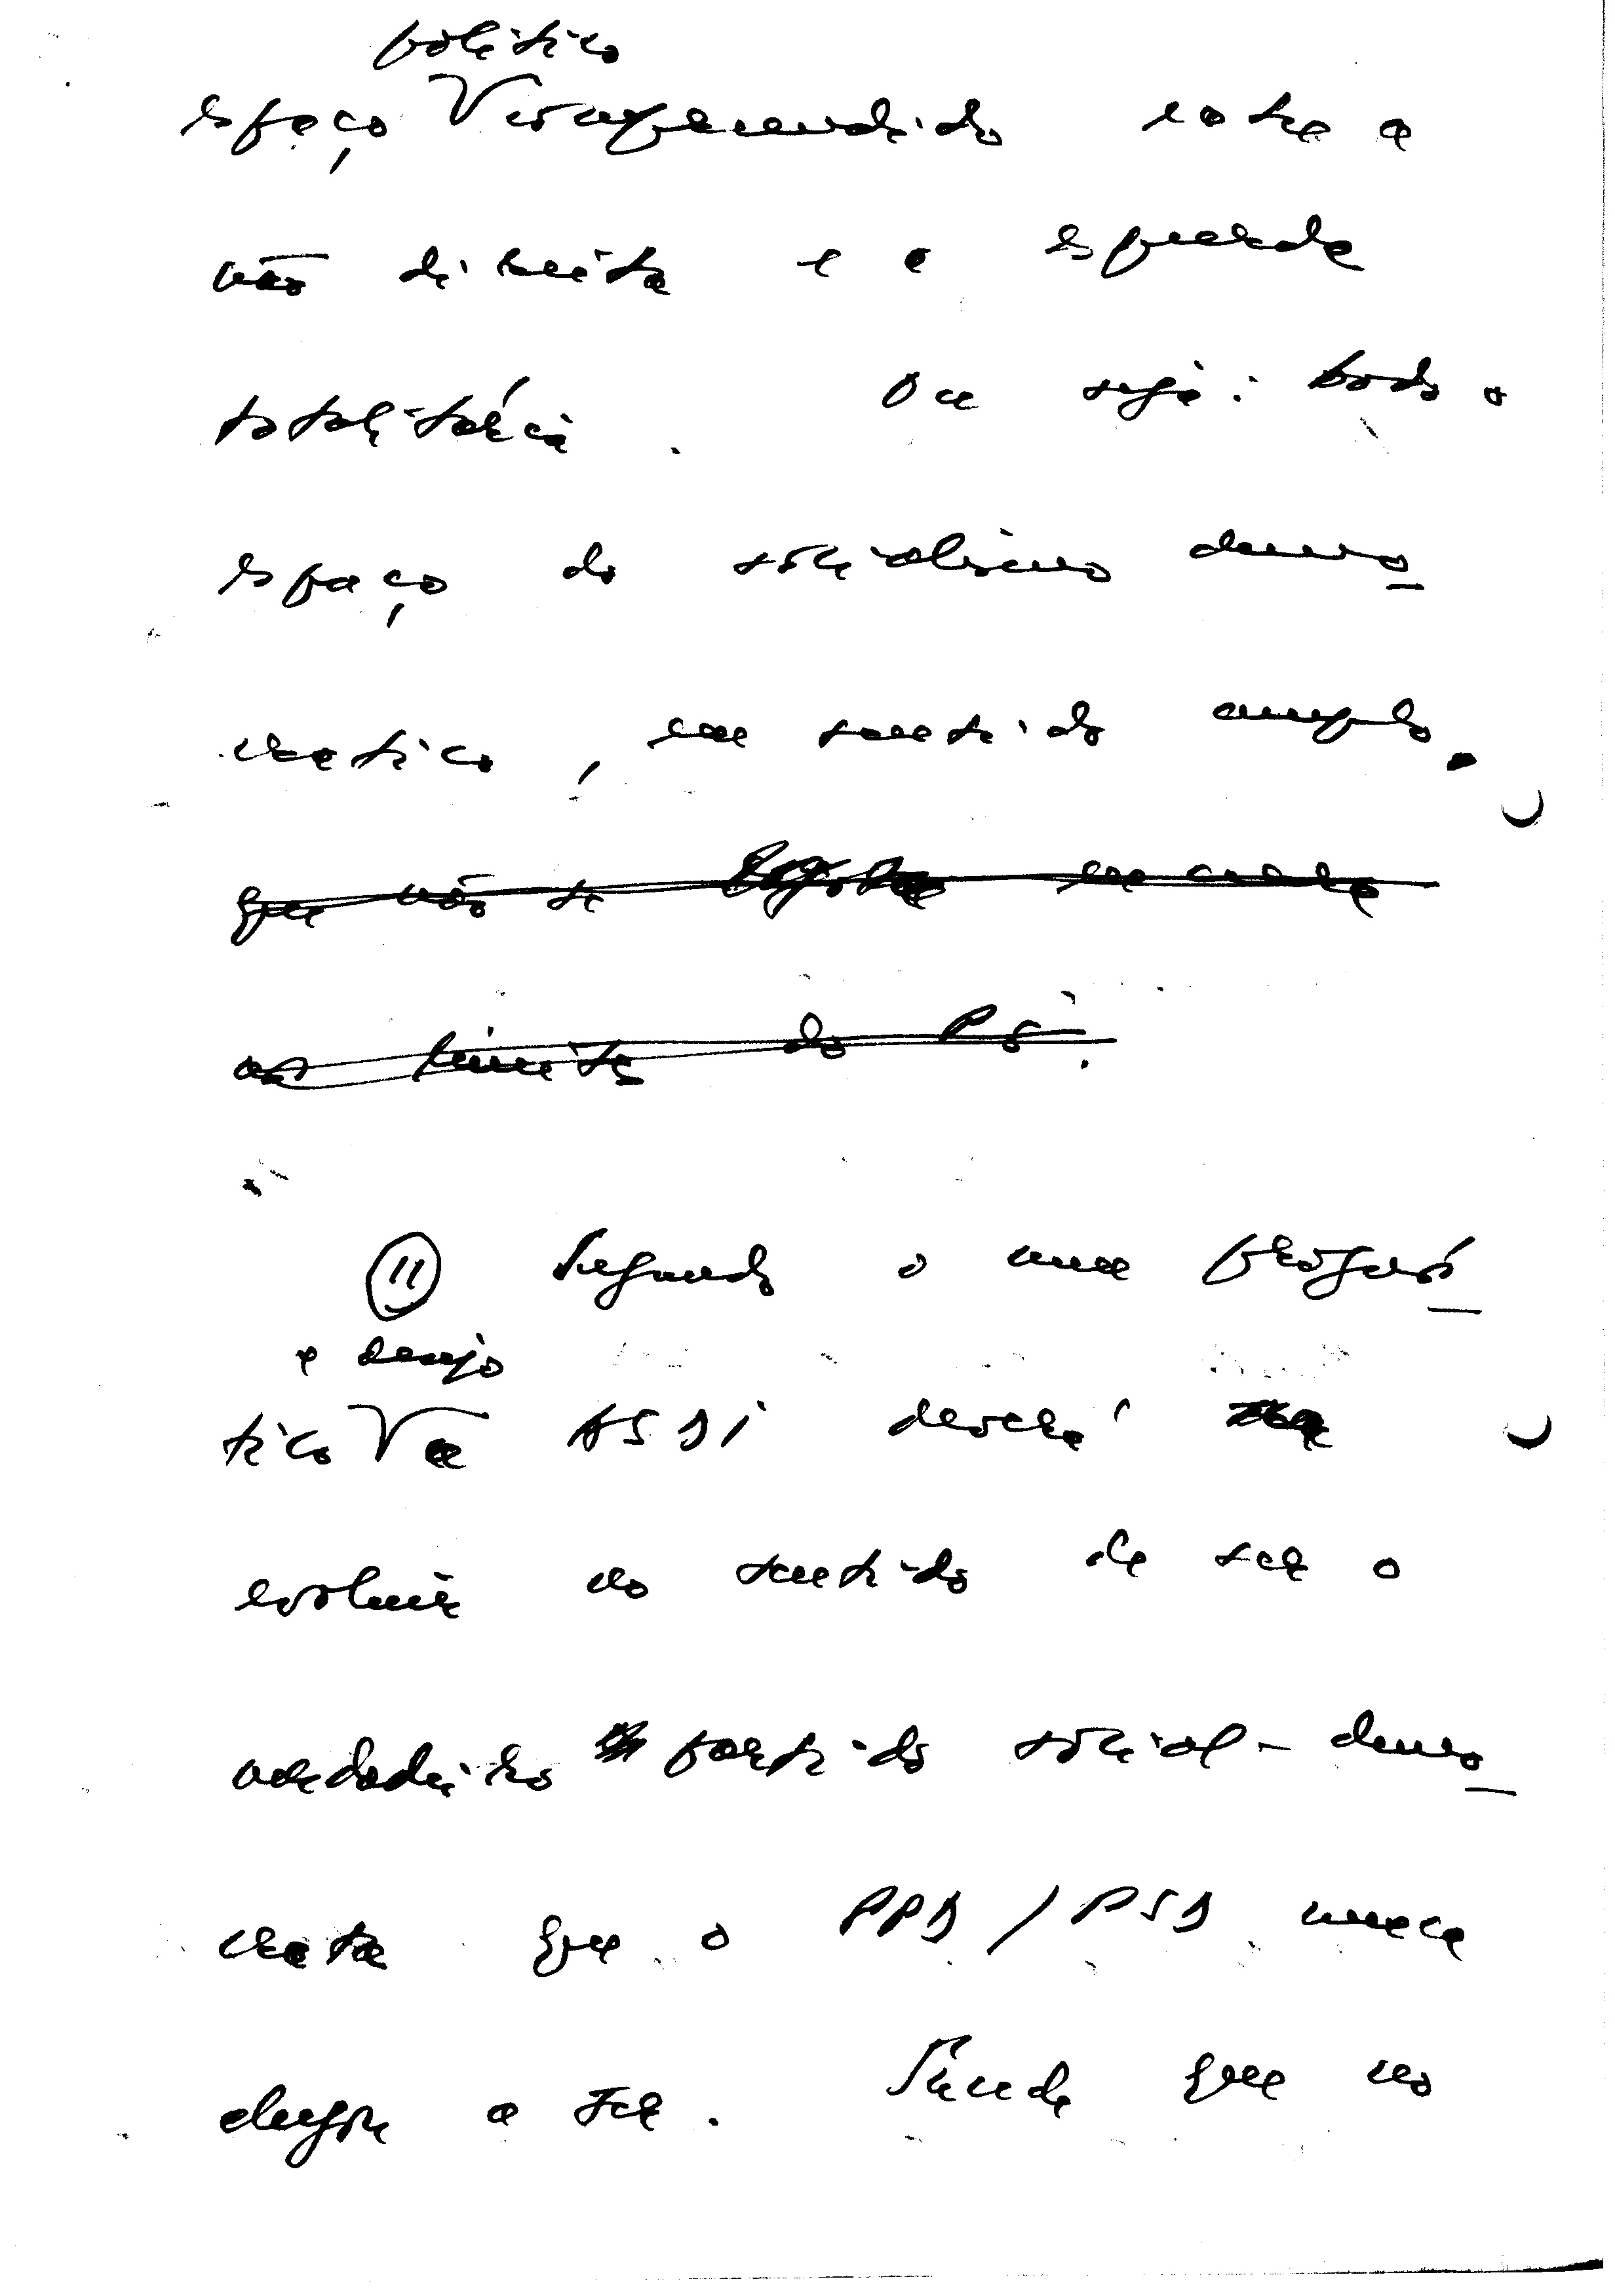 político
espaço compreendido entre a
não direita e a esquerda
totalitária. Ou seja: todo o
espaço do socialismo demo
crático, em sentido amplo.
que não se esgota, em conta
os limites do PS.
11 Segundo o meu prognós
e desejo
tico a ASDI deverá
evoluir no sentido de ser o
verdadeiro partido social-demo
crata que o PPD/PSD nunca
chegou a ser. Sendo que no